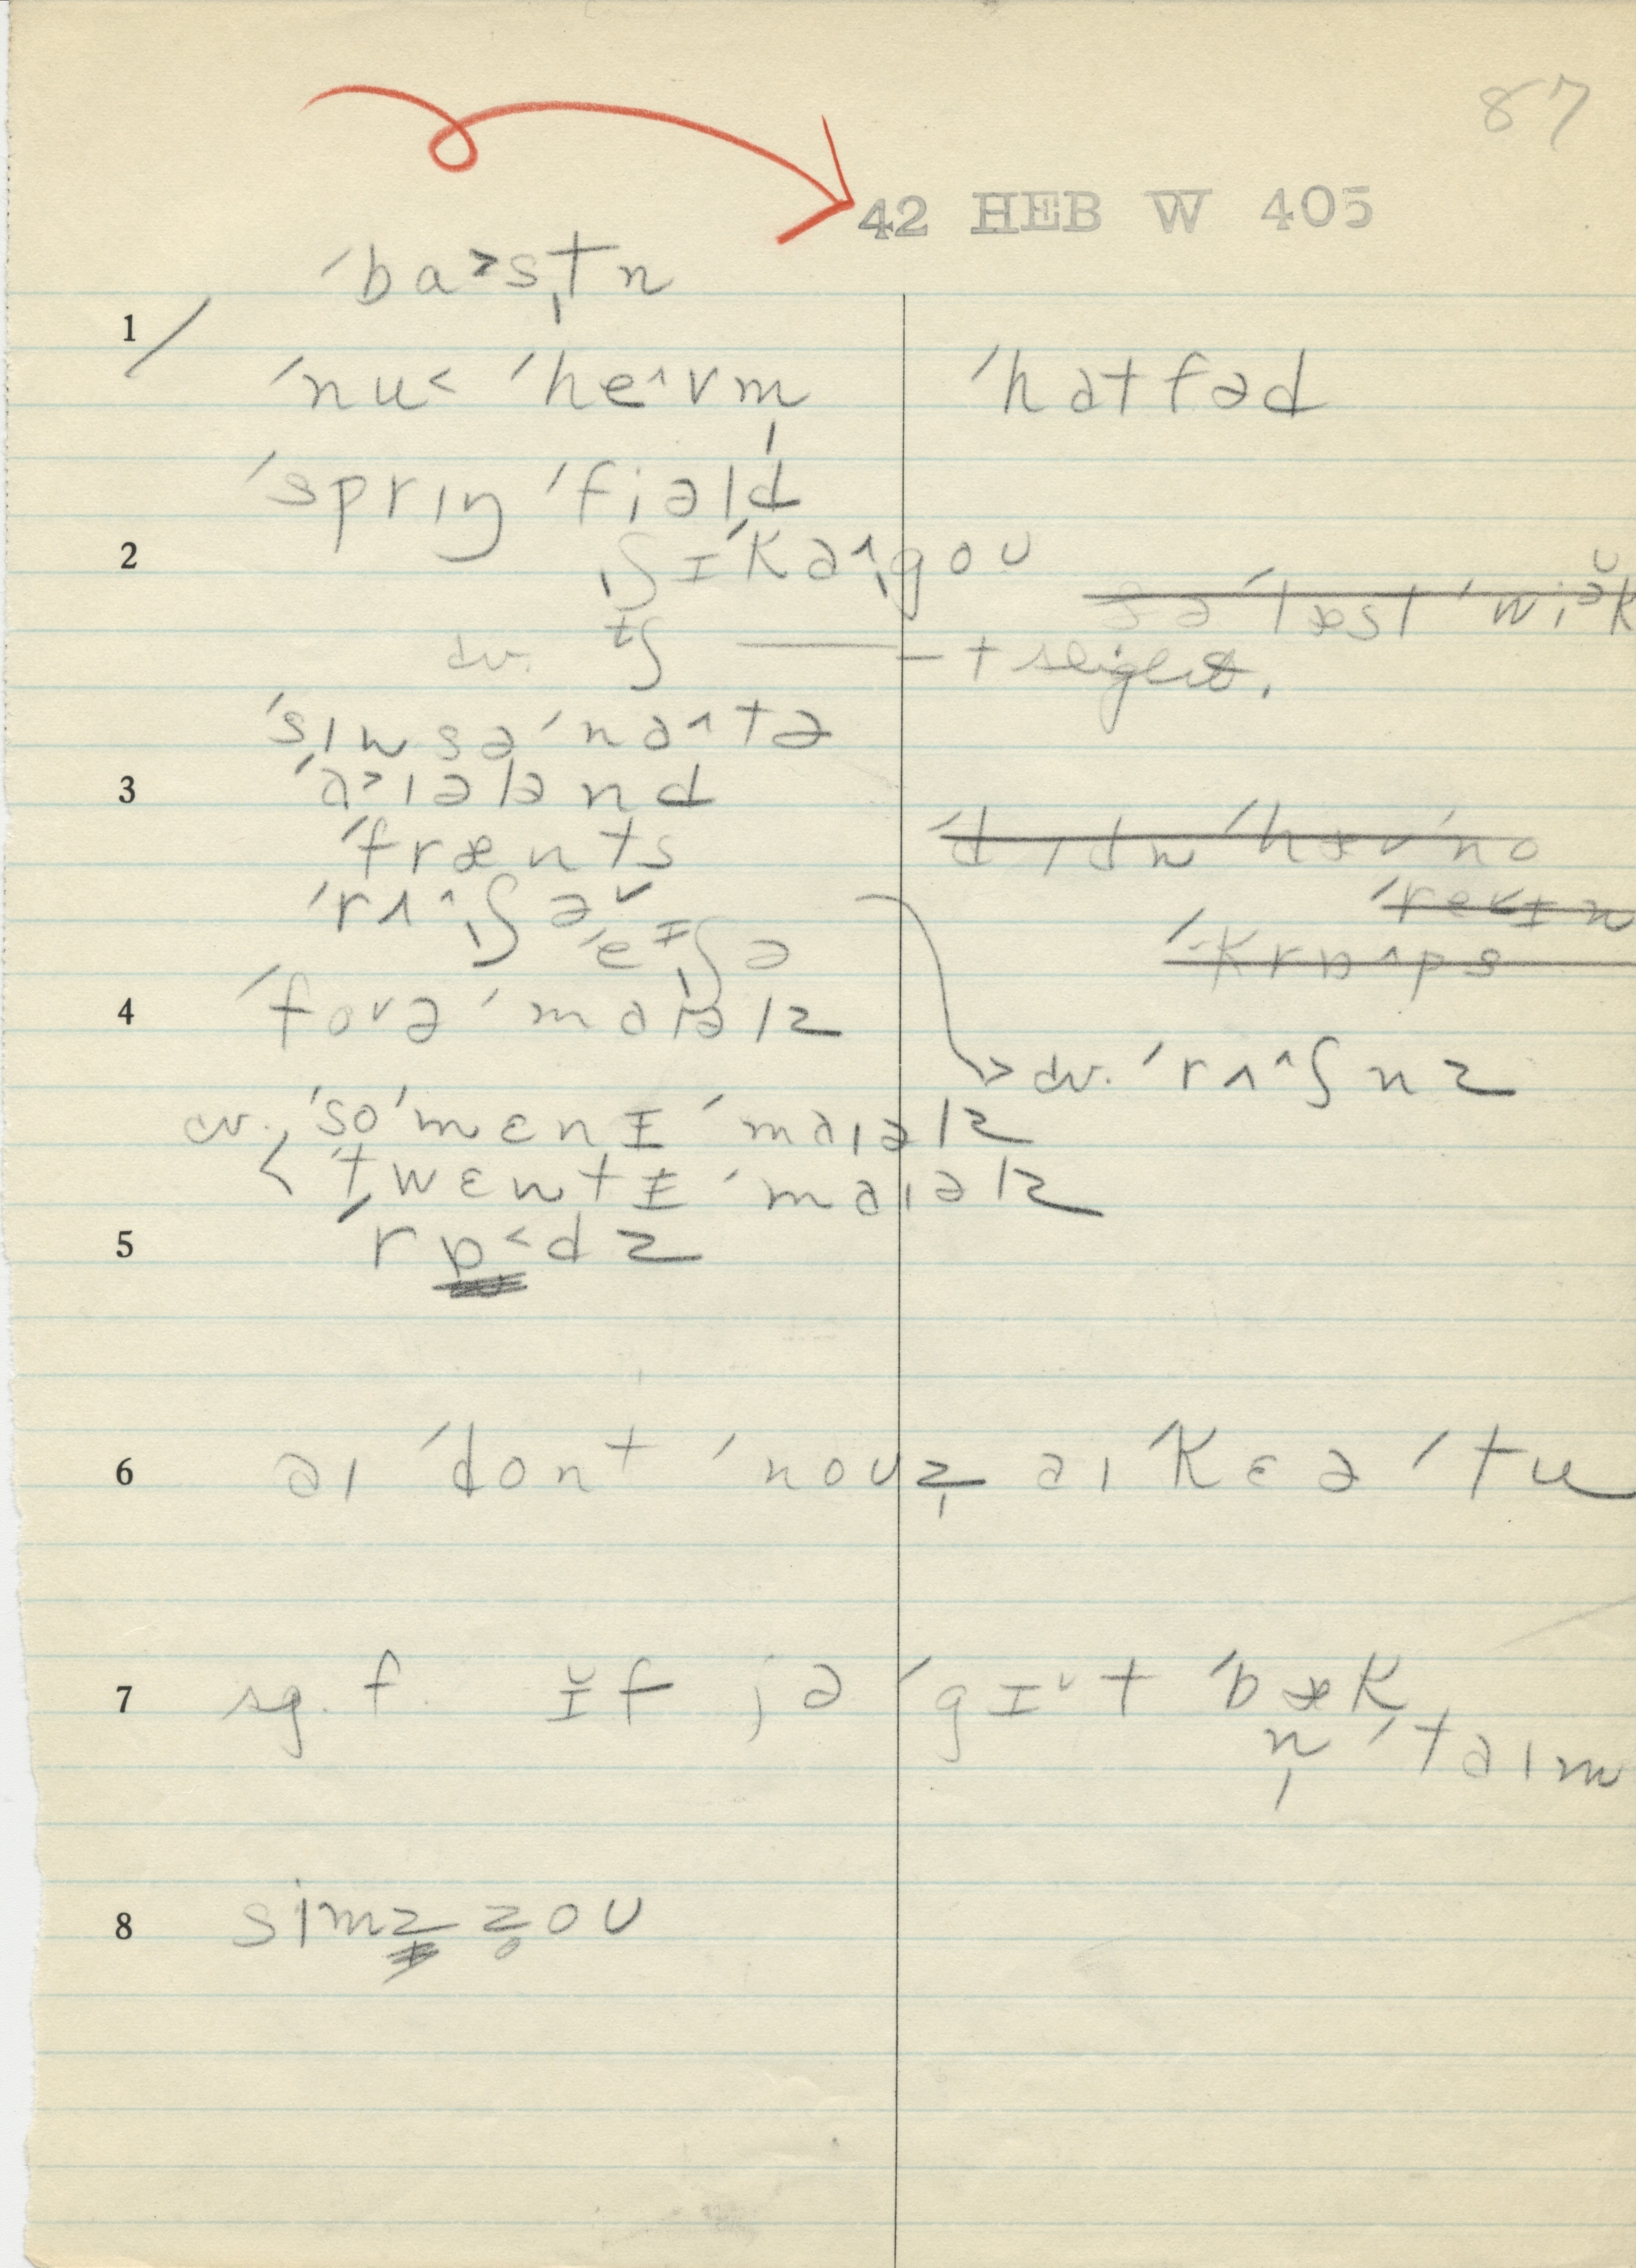 87
42 HEB W 405
ˈba˃s̩tn
1
ˈnu˂ ˈhe^vm̩
ˈhatfəd
ˈsprɪŋ ˈfiəld
2
ʃɪˈka^goʊ
sə ˈlæst ˈwiə̆k
cv. tʃ —— + slight.
ˈsɪnsəˈna^tə
3
ˈa˃ɪələnd
ˈfrænts
ˈdɪdn ˈhæv ˈno
ˈrʌ^ʃə˅
ˈreɪn
ˈeɪʃə
ˈkrɒ^ps
4
ˈfovə ˈmaɪəlz
cv. ˈrʌ^ʃnz
cv. ˈsoˈmɛnɪ ˈmaɪəlz
< ˈtwɛntɪ ˈmaɪəlz
5
ˈrɒ˂dz
6
aɪ ˈdont ˈnoʊz̩ aɪ ˈkɛə ˈtu
7
sg. f. ɪ̆f jə ˈgɪ˅t ˈbæk
n̩ ˈtaɪm
8
simz z̥oʊ